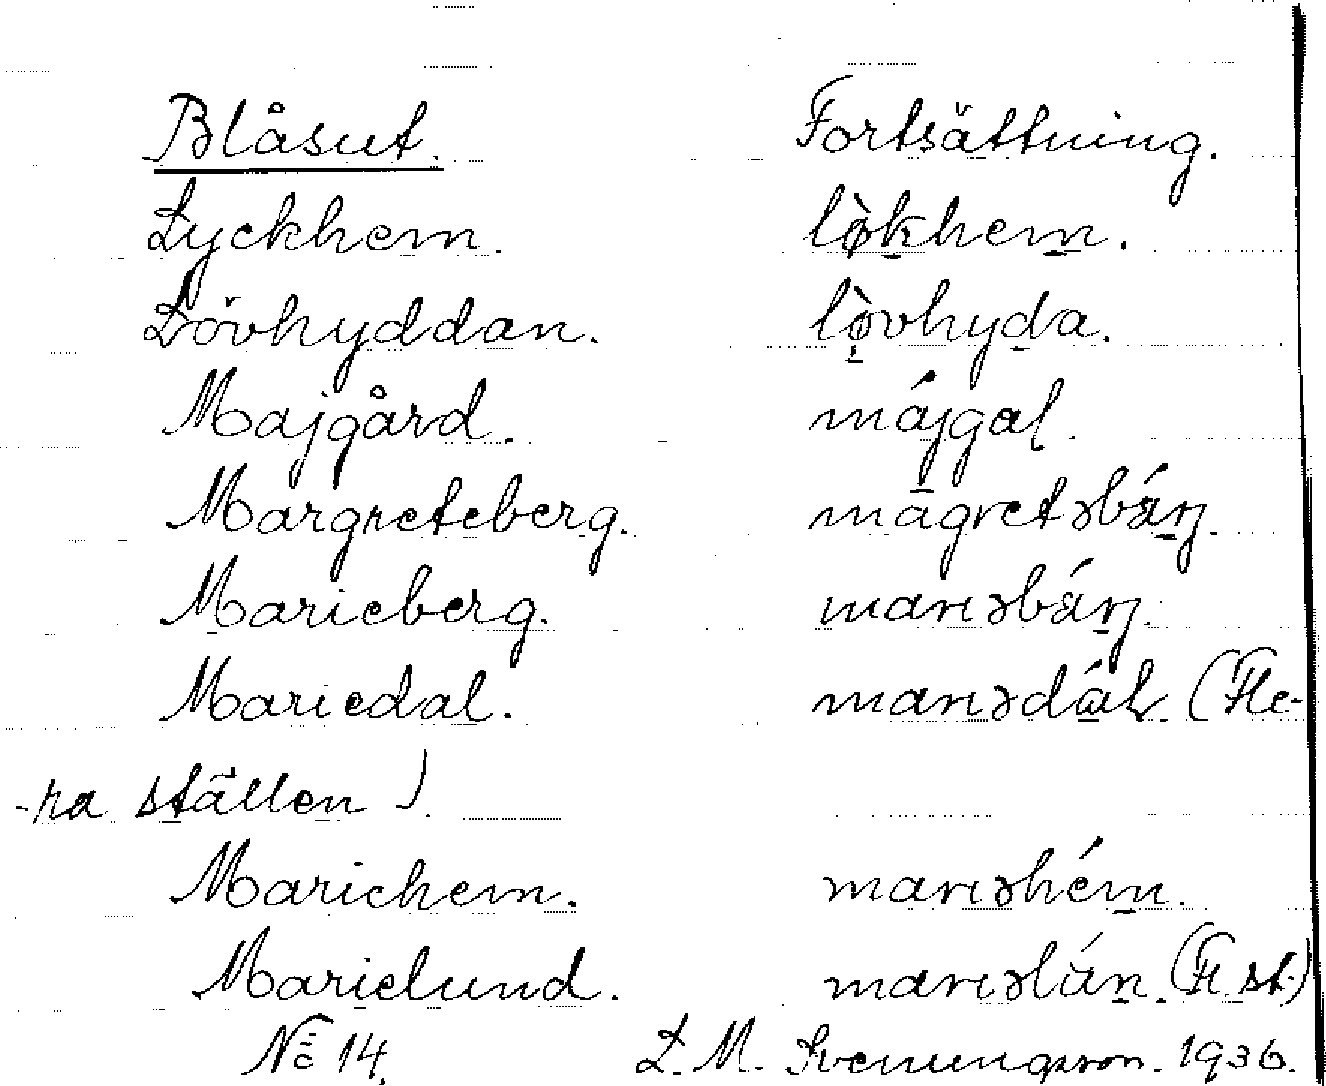 Blåsut. Fortsättning.
Lyckhem. lø̀khem.
Lövhyddan. lø̀vhyda.
Majgård. májgaḷ.
Margreteberg. magretəbárj.
Marieberg. marıəbárj.
Mariedal. marıədáḷ (Fle-
-ra ställen).
Mariehem. marıəhém.
Marielund. marıəlún. (Fl st.)
No 14. L. M. Svenungsson. 1936.